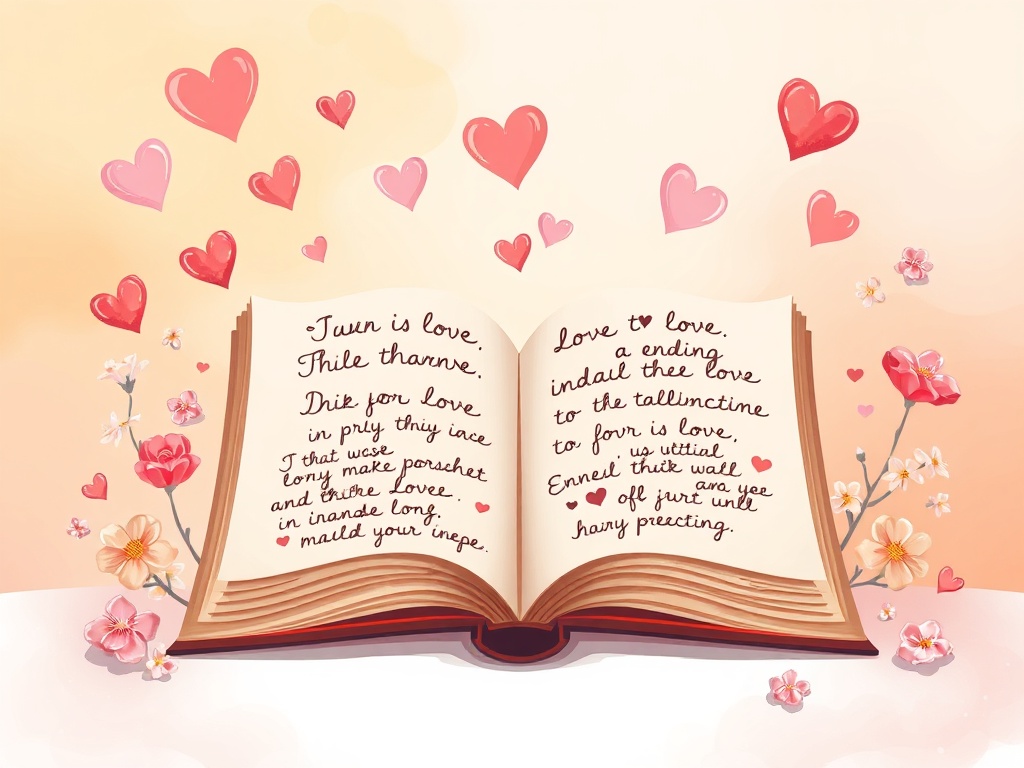 Juun is love.
Thile tharnve.
Drik for love
in prly thiy iace
I that wcse
lony make porschet
and Lovee.
in inande long.
maild your inepe.
Love t♥ love.
a ending
indail thee love
to the tallimctime
to fovr is love.
us uttial
Enneil thiik wall
ara yee
ofl jurt unll
havy preecting.